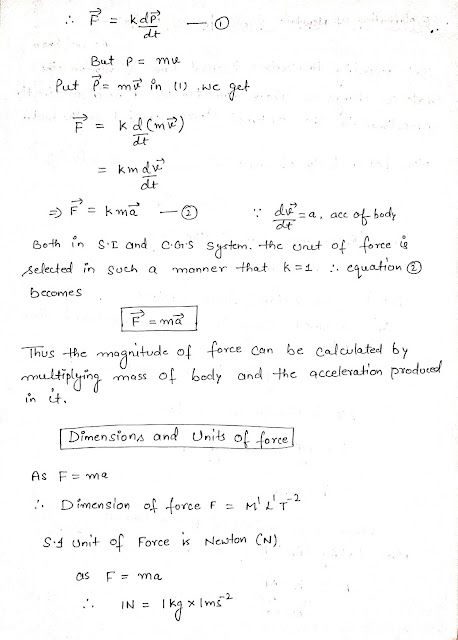 ∴ F⃗ = k dp⃗/dt — ①
But P = mv
Put P⃗ = mv⃗ in (1) we get
F⃗ = k d(mv⃗)/dt
= km dv⃗/dt
⇒ F⃗ = kma⃗ — ② ∵ dv⃗/dt = a, acc of body
Both in S.I and C.G.S system. the unit of force is
selected in such a manner that k=1 ∴ equation ②
becomes
F⃗ = ma⃗
Thus the magnitude of force can be calculated by
multiplying mass of body and the acceleration produced
in it.
Dimensions and Units of force
As F = ma
∴ Dimension of force F = M¹L¹T⁻²
S.I unit of Force is Newton (N)
as F = ma
∴ 1N = 1kg × 1ms⁻²